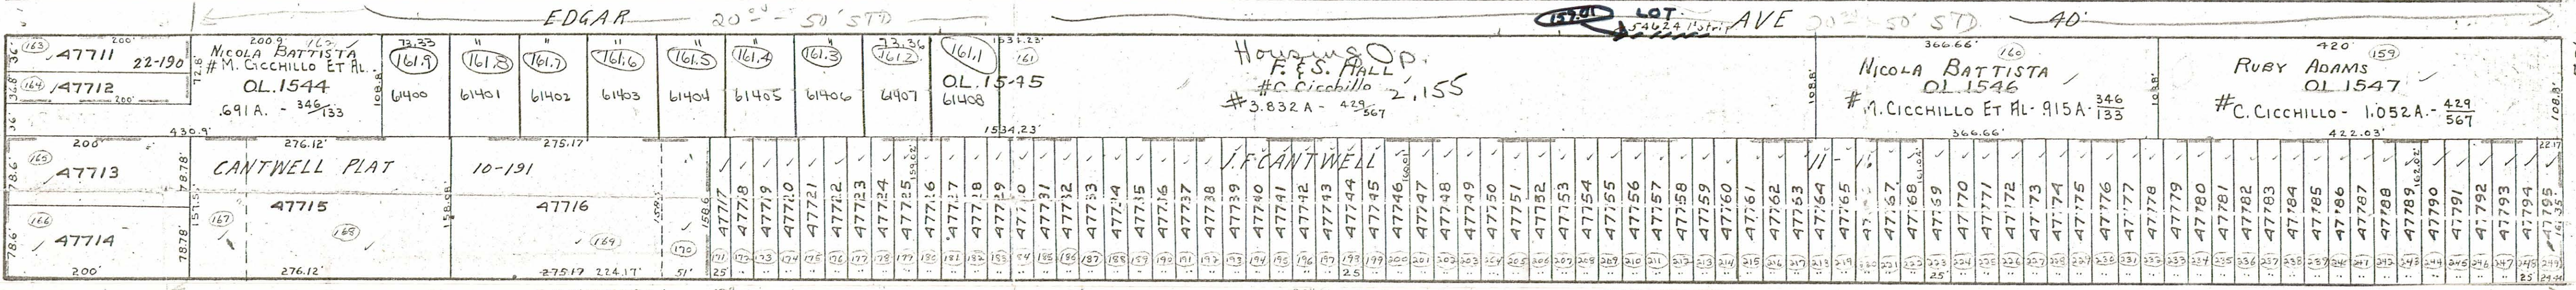 EDGAR 20' - 50' STD AVE 50' STD 40'
159.01 LOT
54624
36' 163 47711 200' 22-190
36.8' 164 47712 200'
36'
72.8'
200.9'
NICOLA BATTISTA
# M. CICCHILLO ET AL.
O.L. 1544
.691 A. - 346/133
108.8'
430.9'
73.33 " " " " " " 73.36 1534.23'
161.9 161.8 161.7 161.6 161.5 161.4 161.3 161.2 161.1 161
O.L. 1545
61400 61401 61402 61403 61404 61405 61406 61407 61408
Housing Op.
F. & S. HALL
#C. Cicchillo
2.155
#3.832 A - 429/567
1534.23'
108.8'
366.66' 160
NICOLA BATTISTA
OL 1546
# M. CICCHILLO ET AL - .915 A - 346/133
366.66'
108.8'
420' 159
RUBY ADAMS
OL 1547
#C. CICCHILLO - 1.052 A. - 429/567
422.03'
108.8'
200' 276.12' 275.17'
165 47713 78.6' 78.78'
CANTWELL PLAT 10-191 J.F. CANTWELL
22.17
159.02 160.01 161.02 162.02
157.5' 158.08' 158.6'
47715 47716
166 47714 78.6' 78.78'
167 168 169 170
200' 276.12' 275.17 224.17' 51'
47717 47718 47719 47720 47721 47722 47723 47724 47725 47726 47727 47728 47729 47730 47731 47732 47733 47734 47735 47736 47737 47738 47739 47740 47741 47742 47743 47744 47745 47746 47747 47748 47749 47750 47751 47752 47753 47754 47755 47756 47757 47758 47759 47760 47761 47762 47763 47764 47765 47767 47768 47769 47770 47771 47772 47773 47774 47775 47776 47777 47778 47779 47780 47781 47782 47783 47784 47785 47786 47787 47788 47789 47790 47791 47792 47793 47794 47795
161.35'
171 172 173 174 175 176 177 178 179 180 181 182 183 184 185 186 187 188 189 190 191 192 193 194 195 196 197 198 199 200 201 202 203 204 205 206 207 208 209 210 211 212 213 214 215 216 217 218 219 220 221 222 223 224 225 226 227 228 229 230 231 232 233 234 235 236 237 238 239 240 241 242 243 244 245 246 247 248 249
25' 25 25' 25